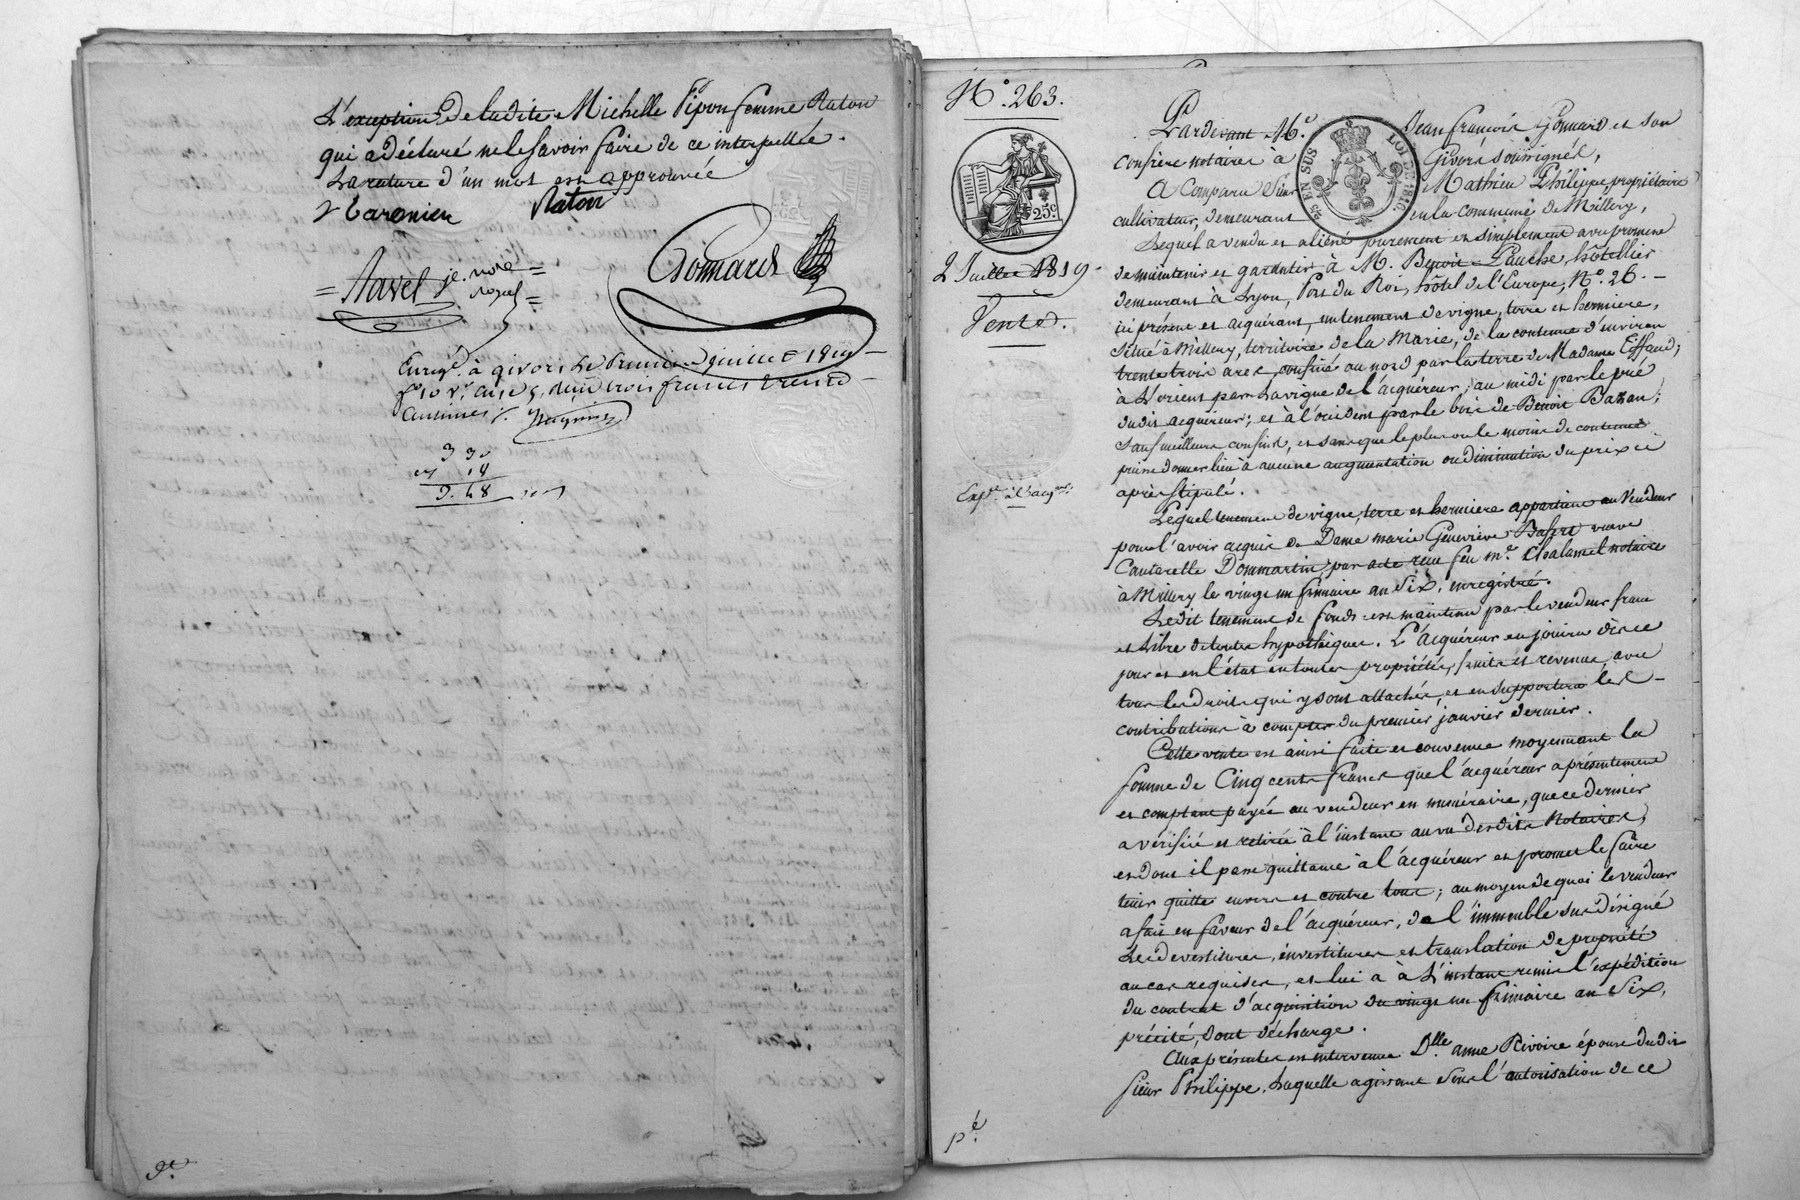 L'exception de ladite Michelle Pipon femme Raton
qui a déclaré ne le savoir faire de ce interpellée.
La rature d'un mot est approuvée
Raton
Navel
Gonnard
Enreg.é à givors le premier juillet 1819
trois francs trente
centimes
3 30
9e
N.o 263.
25c.
2 Juillet 1819
Vente
Exp.
Pardevant M.e Jean françois Gonnard et son
confrère notaires à Givors soussignés,
EN SUS
LOI DE 1816
A Comparu Sieur Mathieu Philippe, propriétaire
cultivateur, demeurant en la commune de Millery,
Lequel a vendu et aliéné purement et simplement avec promesse
de maintenir et garantir à M. Benoit Lauche, hôtellier
demeurant à Lyon, Port du Roi, hôtel de l'Europe, N.o 26.
ici présent et acquérant, un tenement de vigne, terre et hermiere,
Situé à Millery, territoire de la Marie, de la contenue d'environ
trente trois ares, confiné au nord par la terre de Madame Eiffand;
à L'orient par la vigne de l'acquéreur; au midi par le pré
dudit acquéreur; et à l'occident par le bois de Benoit Bazan;
Sauf meilleurs confins, et sans que le plus ou le moins de contenue
puisse donner lieu à aucune augmentation ou diminution du prix ci
après stipulé.
Lequel tenement de vigne, terre et hermiere appartient au Vendeur
pour l'avoir acquis de Dame marie Geneviève Basset veuve
Cantarelle Dommartin, par acte reçu feu m.e Chalamel notaire
à Millery le vingt un frimaire an Six, enregistré.
Ledit tenement de fonds est maintenu par le vendeur franc
et libre de toutes hypothèques. L'acquéreur en jouira dès ce
jour et en l'état en toutes propriétés, fruits et revenus, avec
tous les droits qui y sont attachés, et en supportera les
contributions à compter du premier janvier dernier.
Cette vente est ainsi faite et convenue moyennant la
somme de Cinq cents francs que l'acquéreur a présentement
et comptant payée au vendeur en numéraire, que ce dernier
a vérifiée et retirée à l'instant au vu desdits Notaires,
et dont il passe quittance à l'acquéreur et promet le faire
tenir quitte envers et contre tous; au moyen de quoi le vendeur
a fait en faveur de l'acquéreur, de l'immeuble sus désigné
Les devestitures, investitures et translation de propriété
au cas requises, et lui a à L'instant remis l'expédition
du contrat d'acquisition du vingt un frimaire an Six,
précité, dont décharge.
Aux présentes est intervenue D.lle anne Rivoire épouse dudit
Sieur Philippe, Laquelle agissant sous l'autorisation de ce
pé.